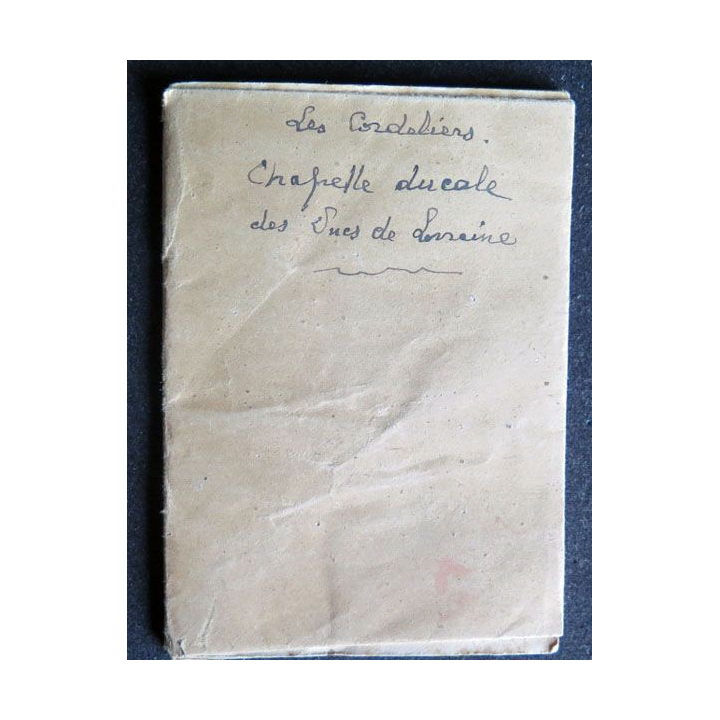 Les Cordeliers.
Chapelle ducale
des Ducs de Lorraine